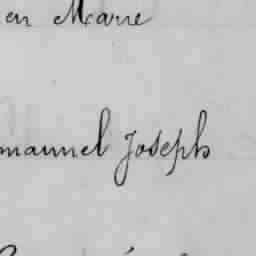 en Marie
manuel Joseph